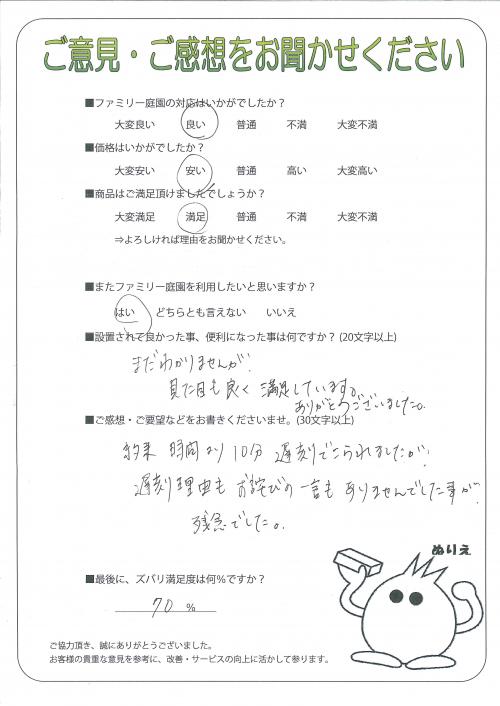 ご意見・ご感想をお聞かせください
■ファミリー庭園の対応はいかがでしたか？
大変良い 良い 普通 不満 大変不満
■価格はいかがでしたか？
大変安い 安い 普通 高い 大変高い
■商品はご満足頂けましたでしょうか？
大変満足 満足 普通 不満 大変不満
⇒よろしければ理由をお聞かせください。
■またファミリー庭園を利用したいと思いますか？
はい どちらとも言えない いいえ
■設置されて良かった事、便利になった事は何ですか？(20文字以上)
まだわかりませんが、
見た目も良く 満足しています。
ありがとうございました。
■ご感想・ご要望などをお書きくださいませ。(30文字以上)
約束 時間より10分 遅刻でこられましたが、
遅刻理由も お詫びの一言も ありませんでした事が、
残念でした。
ぬりえ
■最後に、ズバリ満足度は何%ですか？
70 %
ご協力頂き、誠にありがとうございました。
お客様の貴重な意見を参考に、改善・サービスの向上に活かして参ります。